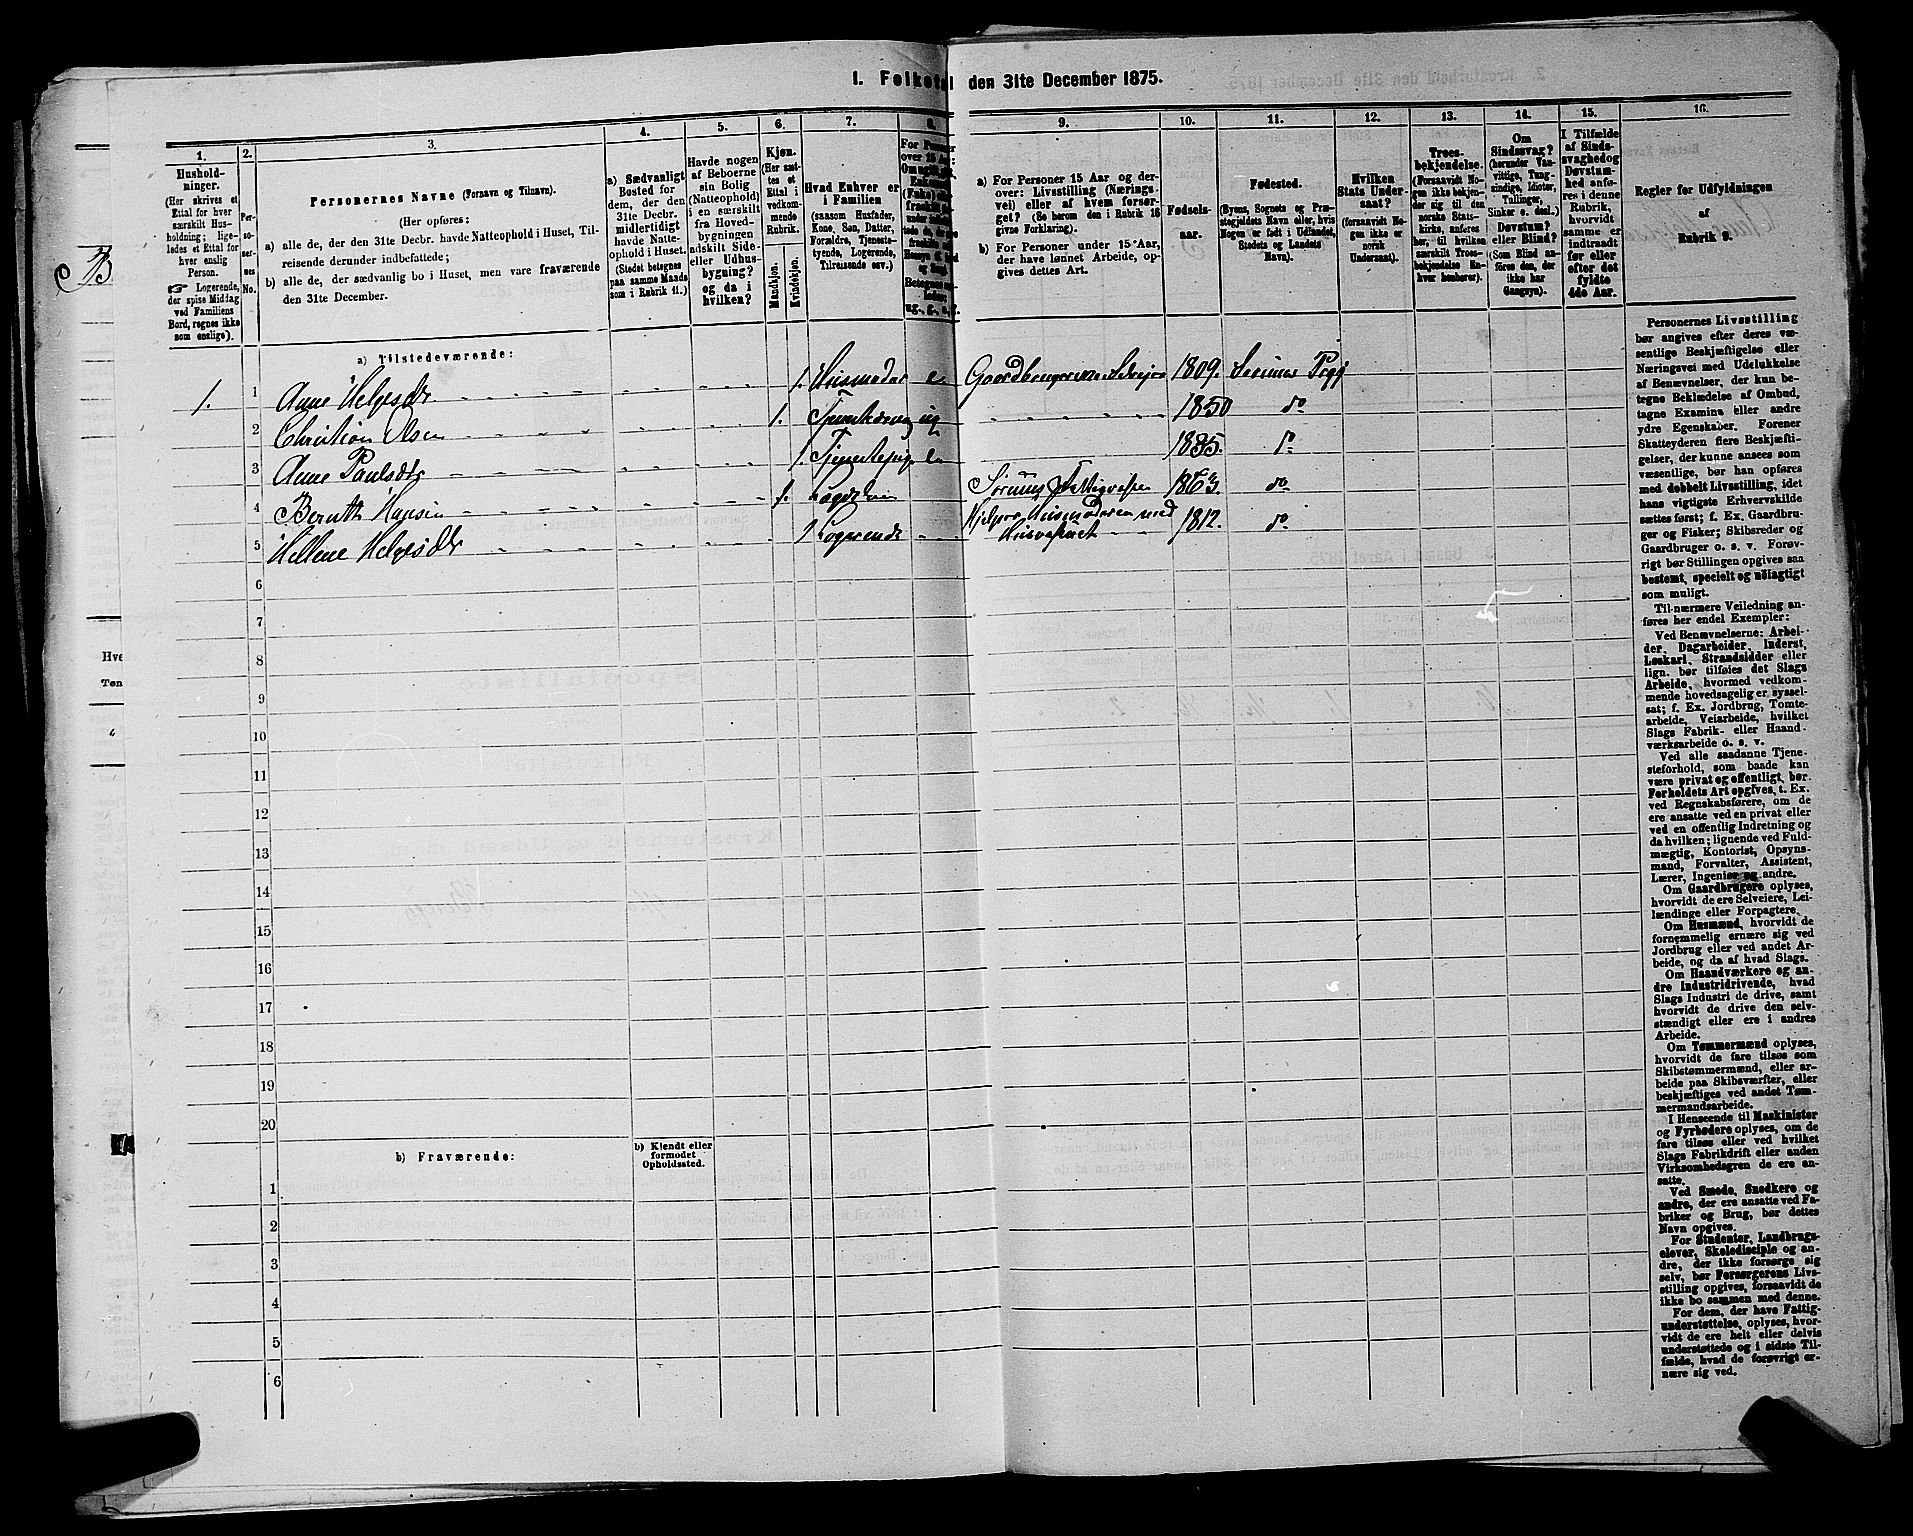 1. Folketal den 31te December 1875.
1.
2.
3.
4.
5.
6.
7.
8.
9.
10.
11.
12.
13.
14.
15.
16.
Husholdninger.
(Her skrives et Ettal for hver særskilt Husholdning; ligeledes et Ettal for hver enslig Person.
☞ Logerende, der spise Middag ved Familiens Bord, regnes ikke som enslige).
Personernes No.
Personernes Navne (Fornavn og Tilnavn).
(Her opføres:
a) alle de, der den 31te Decbr. havde Natteophold i Huset, Tilreisende derunder indbefattede;
b) alle de, der sædvanlig bo i Huset, men vare fraværende den 31te December.
a) Sædvanligt Bosted for dem, der den 31te Decbr. midlertidigt havde Natteophold i Huset. (Stedet betegnes paa samme Maade som i Rubrik 11.)
Havde nogen af Beboerne sin Bolig (Natteophold) i en særskilt fra Hovedbygningen adskilt Side- eller Udhusbygning? og da i hvilken?
Kjøn. (Her sættes et Ettal i vedkommende Rubrik.
Mandkjøn.
Kvindekjøn.
Hvad Enhver er i Familien
(saasom Husfader, Kone, Søn, Datter, Forældre, Tjenestetyende, Logerende, Tilreisende osv.)
a) For Personer 15 Aar og derover: Livsstilling (Næringsvei) eller af hvem forsørget? (Se herom den i Rubrik 16 givne Forklaring).
b) For Personer under 15 Aar, der have lønnet Arbeide, opgives dettes Art.
Fødselsaar.
Fødested.
(Byens, Sognets og Præstegjeldets Navn eller, hvis Nogen er født i Udlandet, Stedets og Landets Navn).
Hvilken Stats Undersaat?
(forsaavidt Nogen ikke er norsk Undersaat).
Troesbekjendelse.
(Forsaavidt Nogen ikke bekjender sig til den norske Statskirke, anføres her, til hvilken særskilt Troesbekjendelse Enhver henhører).
Om Sindssvag? (herunder Vanvittige, Tungsindige, Idioter, Tullinger, Sinker o. desl.) Døvstum? eller Blind? (Som Blind anføres den, der ikke har Gangsyn).
I Tilfælde af Sindssvaghed og Døvstumhed anføres i denne Rubrik, hvorvidt samme er indtraadt før eller efter det fyldte 4de Aar.
Regler for Udfyldningen af Rubrik 9.
a) Tilstedeværende:
1. 1 Anne Helgesdtr 1. Husmoder Gaardbrugerske 1809. Sørums
2 Christian Olsen 1. ug 1850 do
3 Anne Paulsdtr 1. Tjenestepige 1835. do
4 Hansen 1. Sørums 1863. do
5 Hellene Helgesdtr 1 Logerende Hjelper Husmoderen med Husvæsnet 1812. do
6
7
8
9
10
11
12
13
14
15
16
17
18
19
20
b) Fraværende:
b) Kjendt eller formodet Opholdssted.
1
2
3
4
5
6
Personernes Livsstilling
bør angives efter deres væ-
sentlige Beskjæftigelse eller
Næringsvei med Udelukkelse
af Benævnelser, der kun be-
tegne Beklædelse af Ombud,
tagne Examina eller andre
ydre Egenskaber. Forener
Skatteyderen flere Beskjæfti-
gelser, der kunne ansees som
væsentlige, bør han opføres
med dobbelt Livsstilling, idet
hans vigtigste Erhvervskilde
sættes først; f. Ex. Gaardbru-
ger og Fisker; Skibsreder og
Gaardbruger o. s. v. Forøv-
rigt bør Stillingen opgives saa
bestemt, specielt og nöiagtigt
som muligt.
Til nærmere Veiledning an-
føres her endel Exempler:
Ved Benævnelserne: Arbei-
der, Dagarbeider, Inderst,
Løskarl, Strandsidder eller
lign. bør tilføies det Slags
Arbeide, hvormed vedkom-
mende hovedsagelig er syssel-
sat; f. Ex. Jordbrug, Tomte-
arbeide, Veiarbeide, hvilket
Slags Fabrik- eller Haand-
værksarbeide o. s. v.
Ved alle saadanne Tjene-
steforhold, som baade kan
være privat og offentligt, bør
Forholdets Art opgives, t. Ex.
ved Regnskabsførere, om de
ere ansatte ved en privat eller
ved en offentlig Indretning og
da hvilken; lignende ved Fuld-
mægtig, Kontorist, Opsyns-
mand, Forvalter, Assistent,
Lærer, Ingeniør og andre.
Om Gaardbrugere oplyses,
hvorvidt de ere Selveiere, Lei-
lændinge eller Forpagtere.
Om Husmænd, hvorvidt de
fornemmelig ernære sig ved
Jordbrug eller ved andet Ar-
beide, og da af hvad Slags.
Om Haandværkere og an-
dre Industridrivende, hvad
Slags Industri de drive, samt
hvorvidt de drive den selv-
stændigt eller ere i andres
Arbeide.
Om Tømmermænd oplyses,
hvorvidt de fare tilsøs som
Skibstømmermænd, eller ar-
beide paa Skibsværfter, eller
beskjæftiges ved andet Tøm-
mermandsarbeide.
I Henseende til Maskinister
og Fyrbødere oplyses, om de
fare tilsøs eller ved hvilket
Slags Fabrikdrift eller anden
Virksomhedsgren de ere an-
satte.
Ved Smede, Snedkere og
andre, der ere ansatte ved Fa-
briker og Brug, bør dettes
Navn opgives.
For Studenter, Landbrugs-
elever, Skoledisciple og an-
dre, der ikke forsørge sig
selv, bør Forsørgerens Livs-
stilling opgives, forsaavidt de
ikke bo sammen med denne.
For dem, der have Fattig-
understøttelse, oplyses, hvor-
vidt de ere helt eller delvis
understøttede og i sidste Til-
fælde, hvad de forøvrigt er-
nære sig ved.